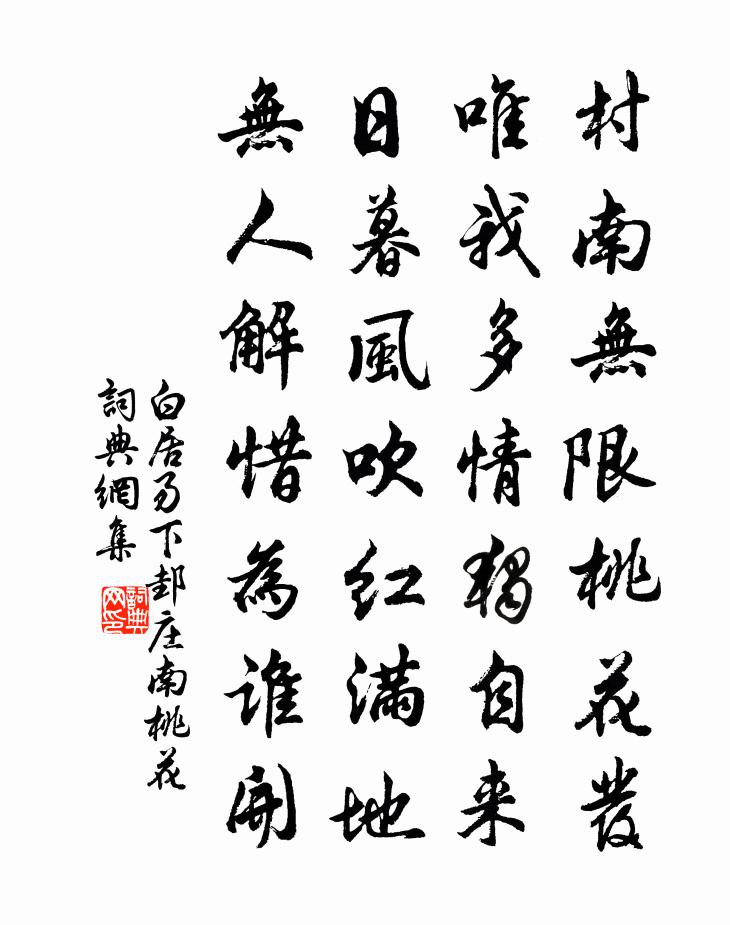 村南無限桃花發
唯我多情獨自来
日暮風吹紅滿地
無人解惜為誰開
白居易下邽庄南桃花
詞典網集
詞典网印